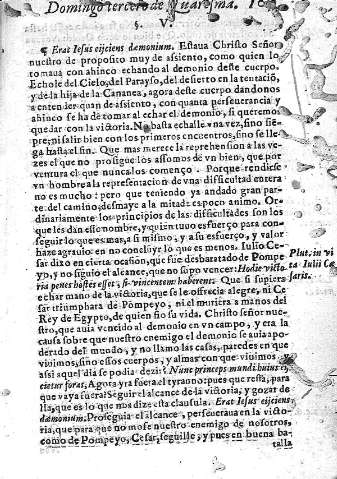 Domingo tercero de Quaresma.
§. V.
¶ Erat Iesus eijciens dæmonium. Estaua Christo Señor
nuestro de proposito muy de assiento, como quien lo
tomaua con ahinco echando al demonio deste cuerpo.
Echole del Cielo, del Parayso, del desierto en la tentaciō,
y de la hija de la Cananea, agora deste cuerpo dandonos
a entender quan de assiento, con quanta perseuerancia y
ahinco se ha de tomar al echar el demonio, si queremos
quedar con la victoria. No basta echalle vna vez, sino siē-
pre; ni salir bien con los primeros encuentros, sino se lle-
ga hasta el fin. Que mas merece la reprehension a las ve-
zes el que no prosigue los assomos de vn bien, que por
ventura el que nunca los començo. Porque rendirse
vn hombre a la representacion de vna dificultad entera
no es mucho; pero que teniendo ya andado gran par-
te del camino, desmaye a la mitad es poco animo. Or-
dinariamente los principios de las dificultades son los
que les dan esse nombre, y quien tuuo esfuerço para con-
seguir lo que es mas, a si mismo, y a su esfuerço, y valor
haze agrauio en no concluyr lo que es menos. Iulio Ce-
sar dixo en cierta ocasion, que fue desbaratado de Pompe
yo, y no siguio el alcance, que no supo vencer: Hodie victo
ria penes hostes esset, si vincentem haberent. Que si supiera
echar mano de la victoria, que se le ofrecia alegre, ni Ce
sar triumphara de Pompeyo, ni el muriera a manos del
Rey de Egypto, de quien fio su vida. Christo Señor nue-
stro, que auia vencido al demonio en vn campo, y era la
causa sobre que nuestro enemigo el demonio se auia apo-
derado del mundo, y no llamo las casas, paredes en que
viuimos, sino essos cuerpos, y almas con que viuimos
assi aquel dia se podia dezir: Nunc princeps mundi huius ei
cietur foras, Agora yra fuera el tyranno: pues que resta, para
que vaya fuera? Seguir el alcance de la victoria, y gozar de
lla, que es lo que nos dize esta clausula. Erat Iesus eijciens
dæmonium: Proseguia el alcance, perseueraua en la victo-
ria, que para que no mofe nuestro enemigo de nosotros,
como de Pompeyo, Cesar, seguille, y pues en buena ba-
talla
Plut. in vi
ta Iulii Cæ
saris.